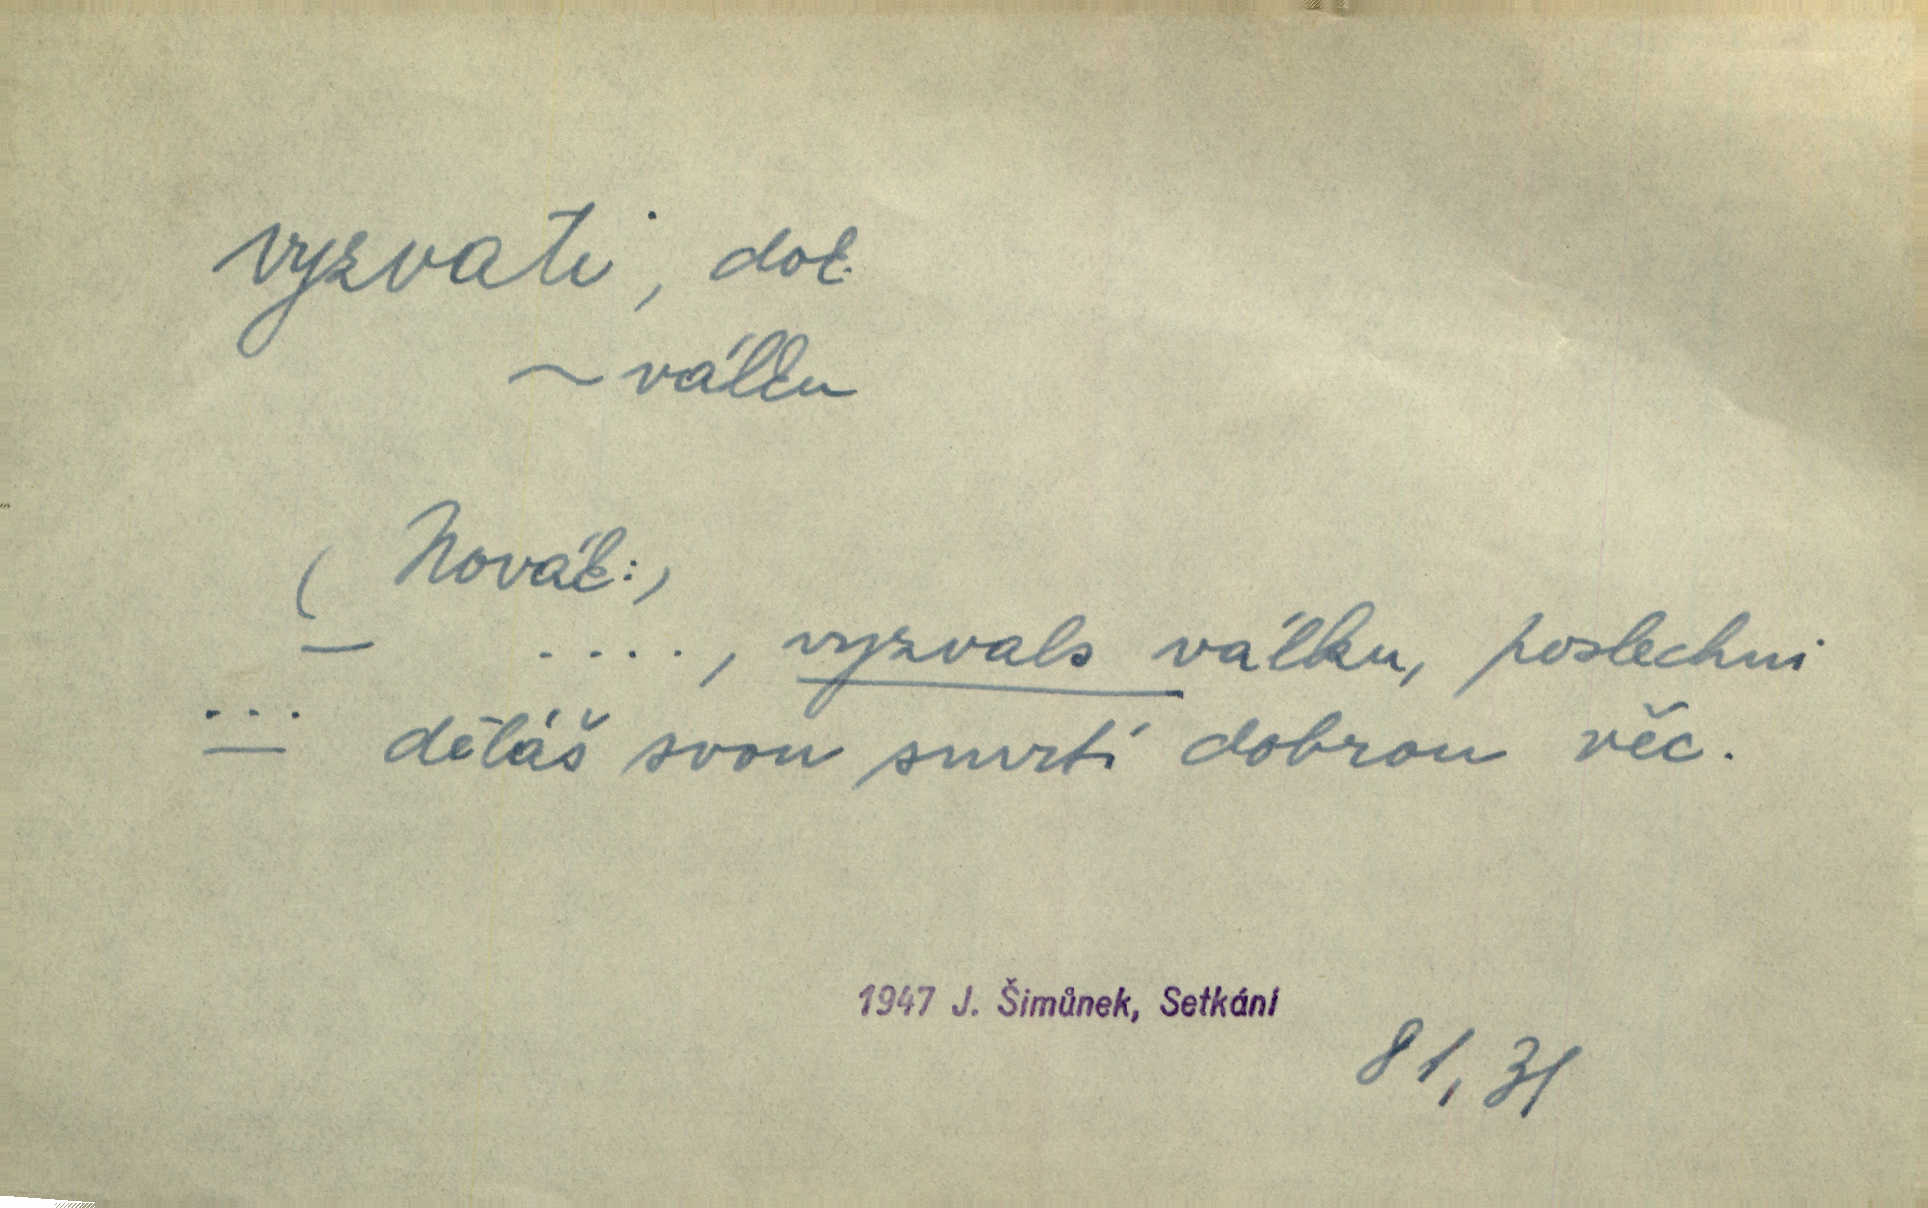 vyzvati, dok.
~ válku
(Novák:)
— ...., vyzvals válku, poslechni
... — děláš svou smrtí dobrou věc.
1947 J. Šimůnek, Setkání
81, 31